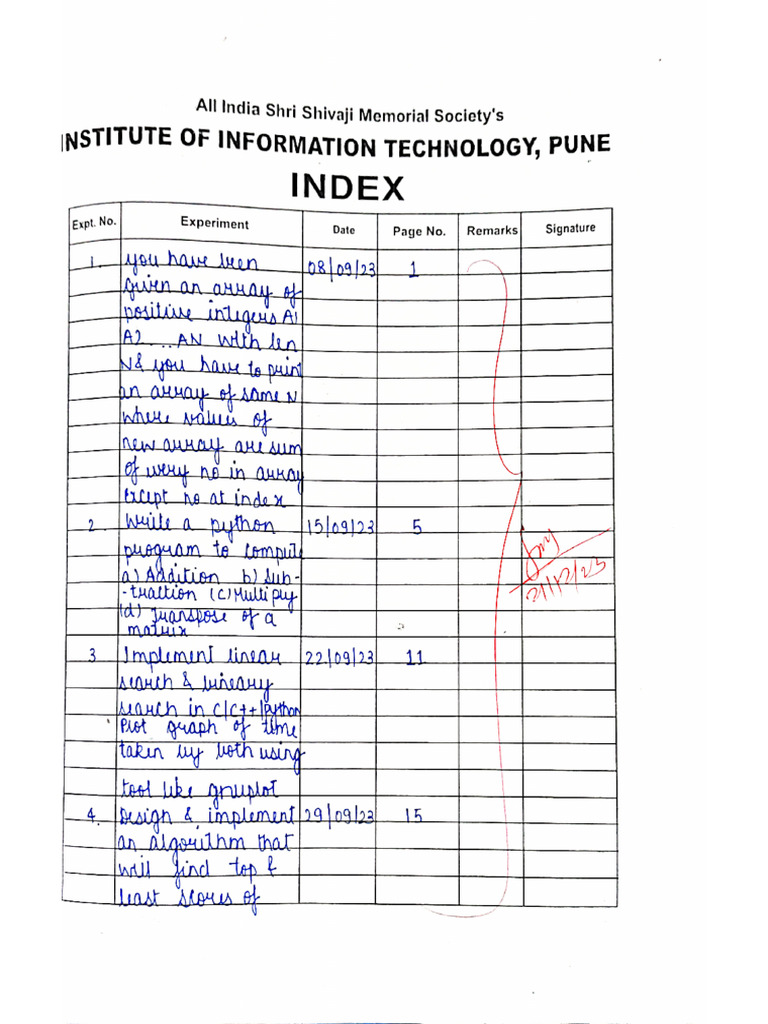 All India Shri Shivaji Memorial Society's
INSTITUTE OF INFORMATION TECHNOLOGY, PUNE
INDEX
Expt. No. Experiment Date Page No. Remarks Signature
1. you have been 08/09/23 1
given an array of
positive integers A1
A2 ... AN with len
N & you have to print
an array of same N
where values of
new array are sum
of every no in array
except no at index
2 Write a python 15/09/23 5
program to compute
a) Addition b) Sub-
-traction (c) Multiply
(d) Transpose of a
matrix
21/12/23
3 Implement linear 22/09/23 11
search & binary
search in C/C++/Python
Plot graph of time
taken by both using
tool like gnuplot
4. Design & implement 29/09/23 15
an algorithm that
will find top &
least scores of